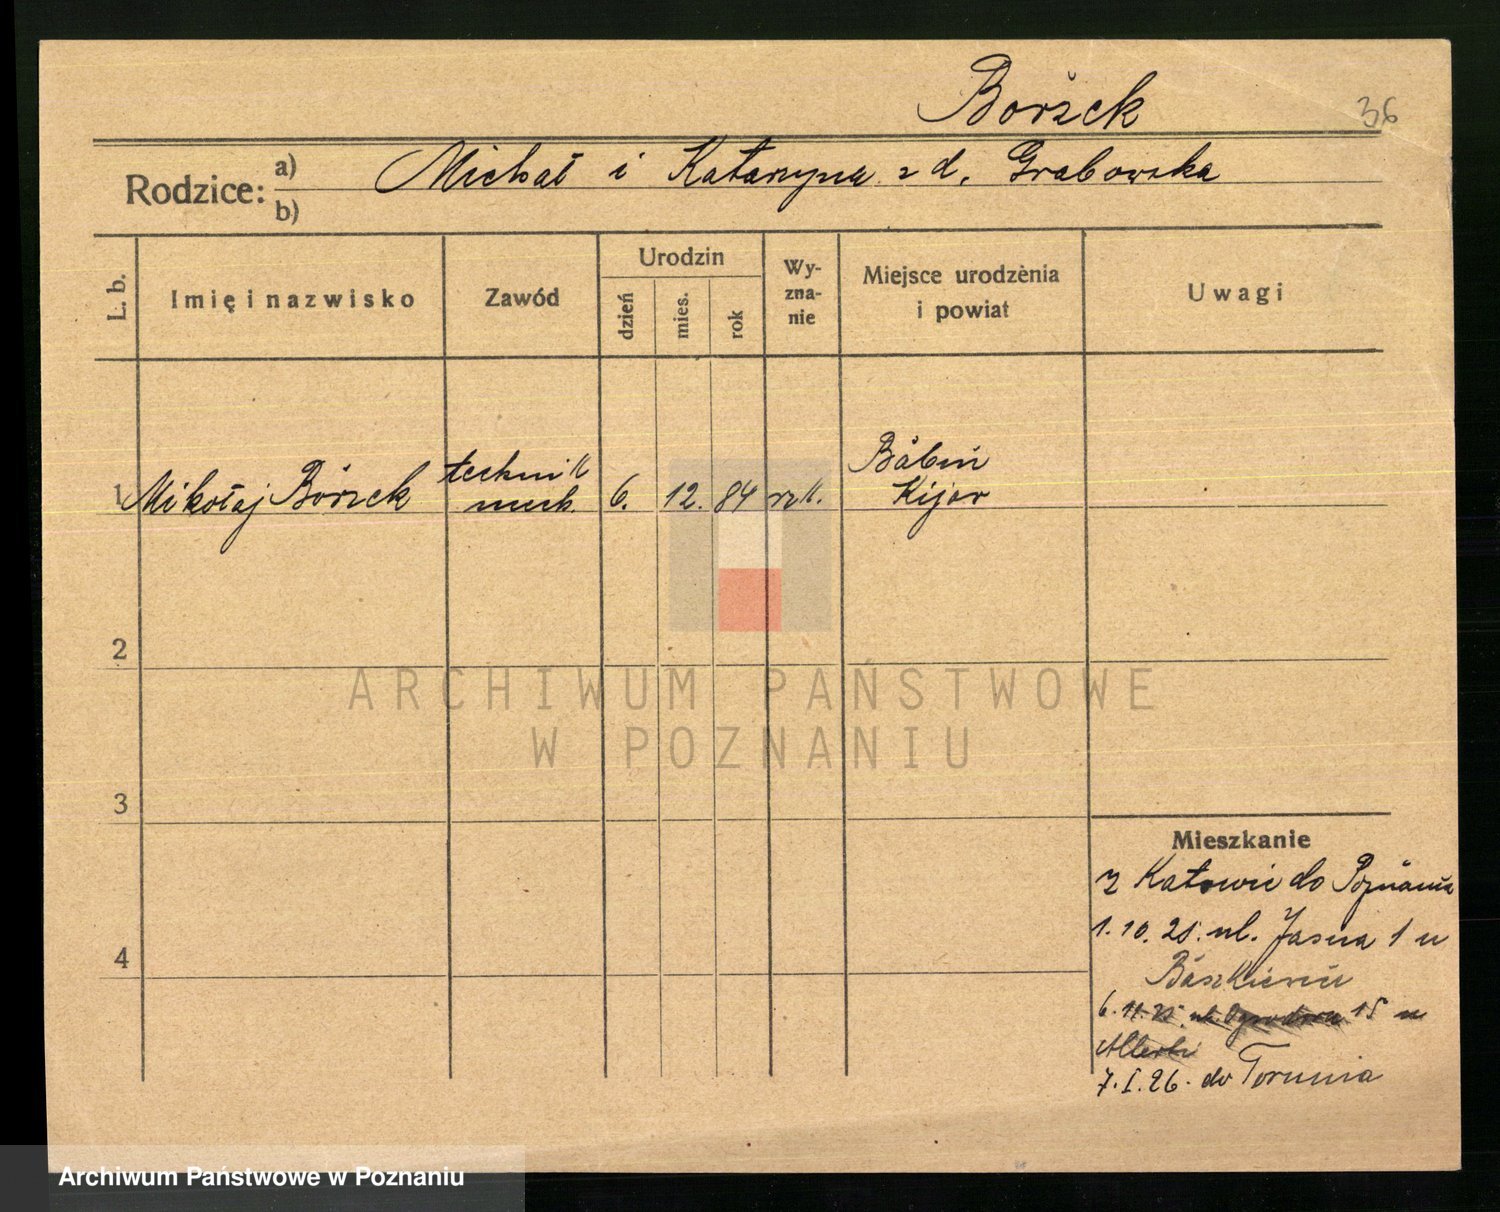 Borżek
36
Rodzice: a) Michał i Katarzyna z d. Grabowska
b)
L. b. Imię i nazwisko Zawód Urodzin dzień mies. rok Wy-zna-nie Miejsce urodzènia i powiat Uwagi
1 Mikołaj Borżek technik mech. 6. 12. 84 rzk. Babin Kijow
2
ARCHIWUM PAŃSTWOWE
W POZNANIU
3
4
Mieszkanie
z Katowic do Poznania
1.10.25. ul. Jasna 1 u
6.11.25. ul. Ogrodowa 15 u
7.I.26. do Torunia
Archiwum Państwowe w Poznaniu